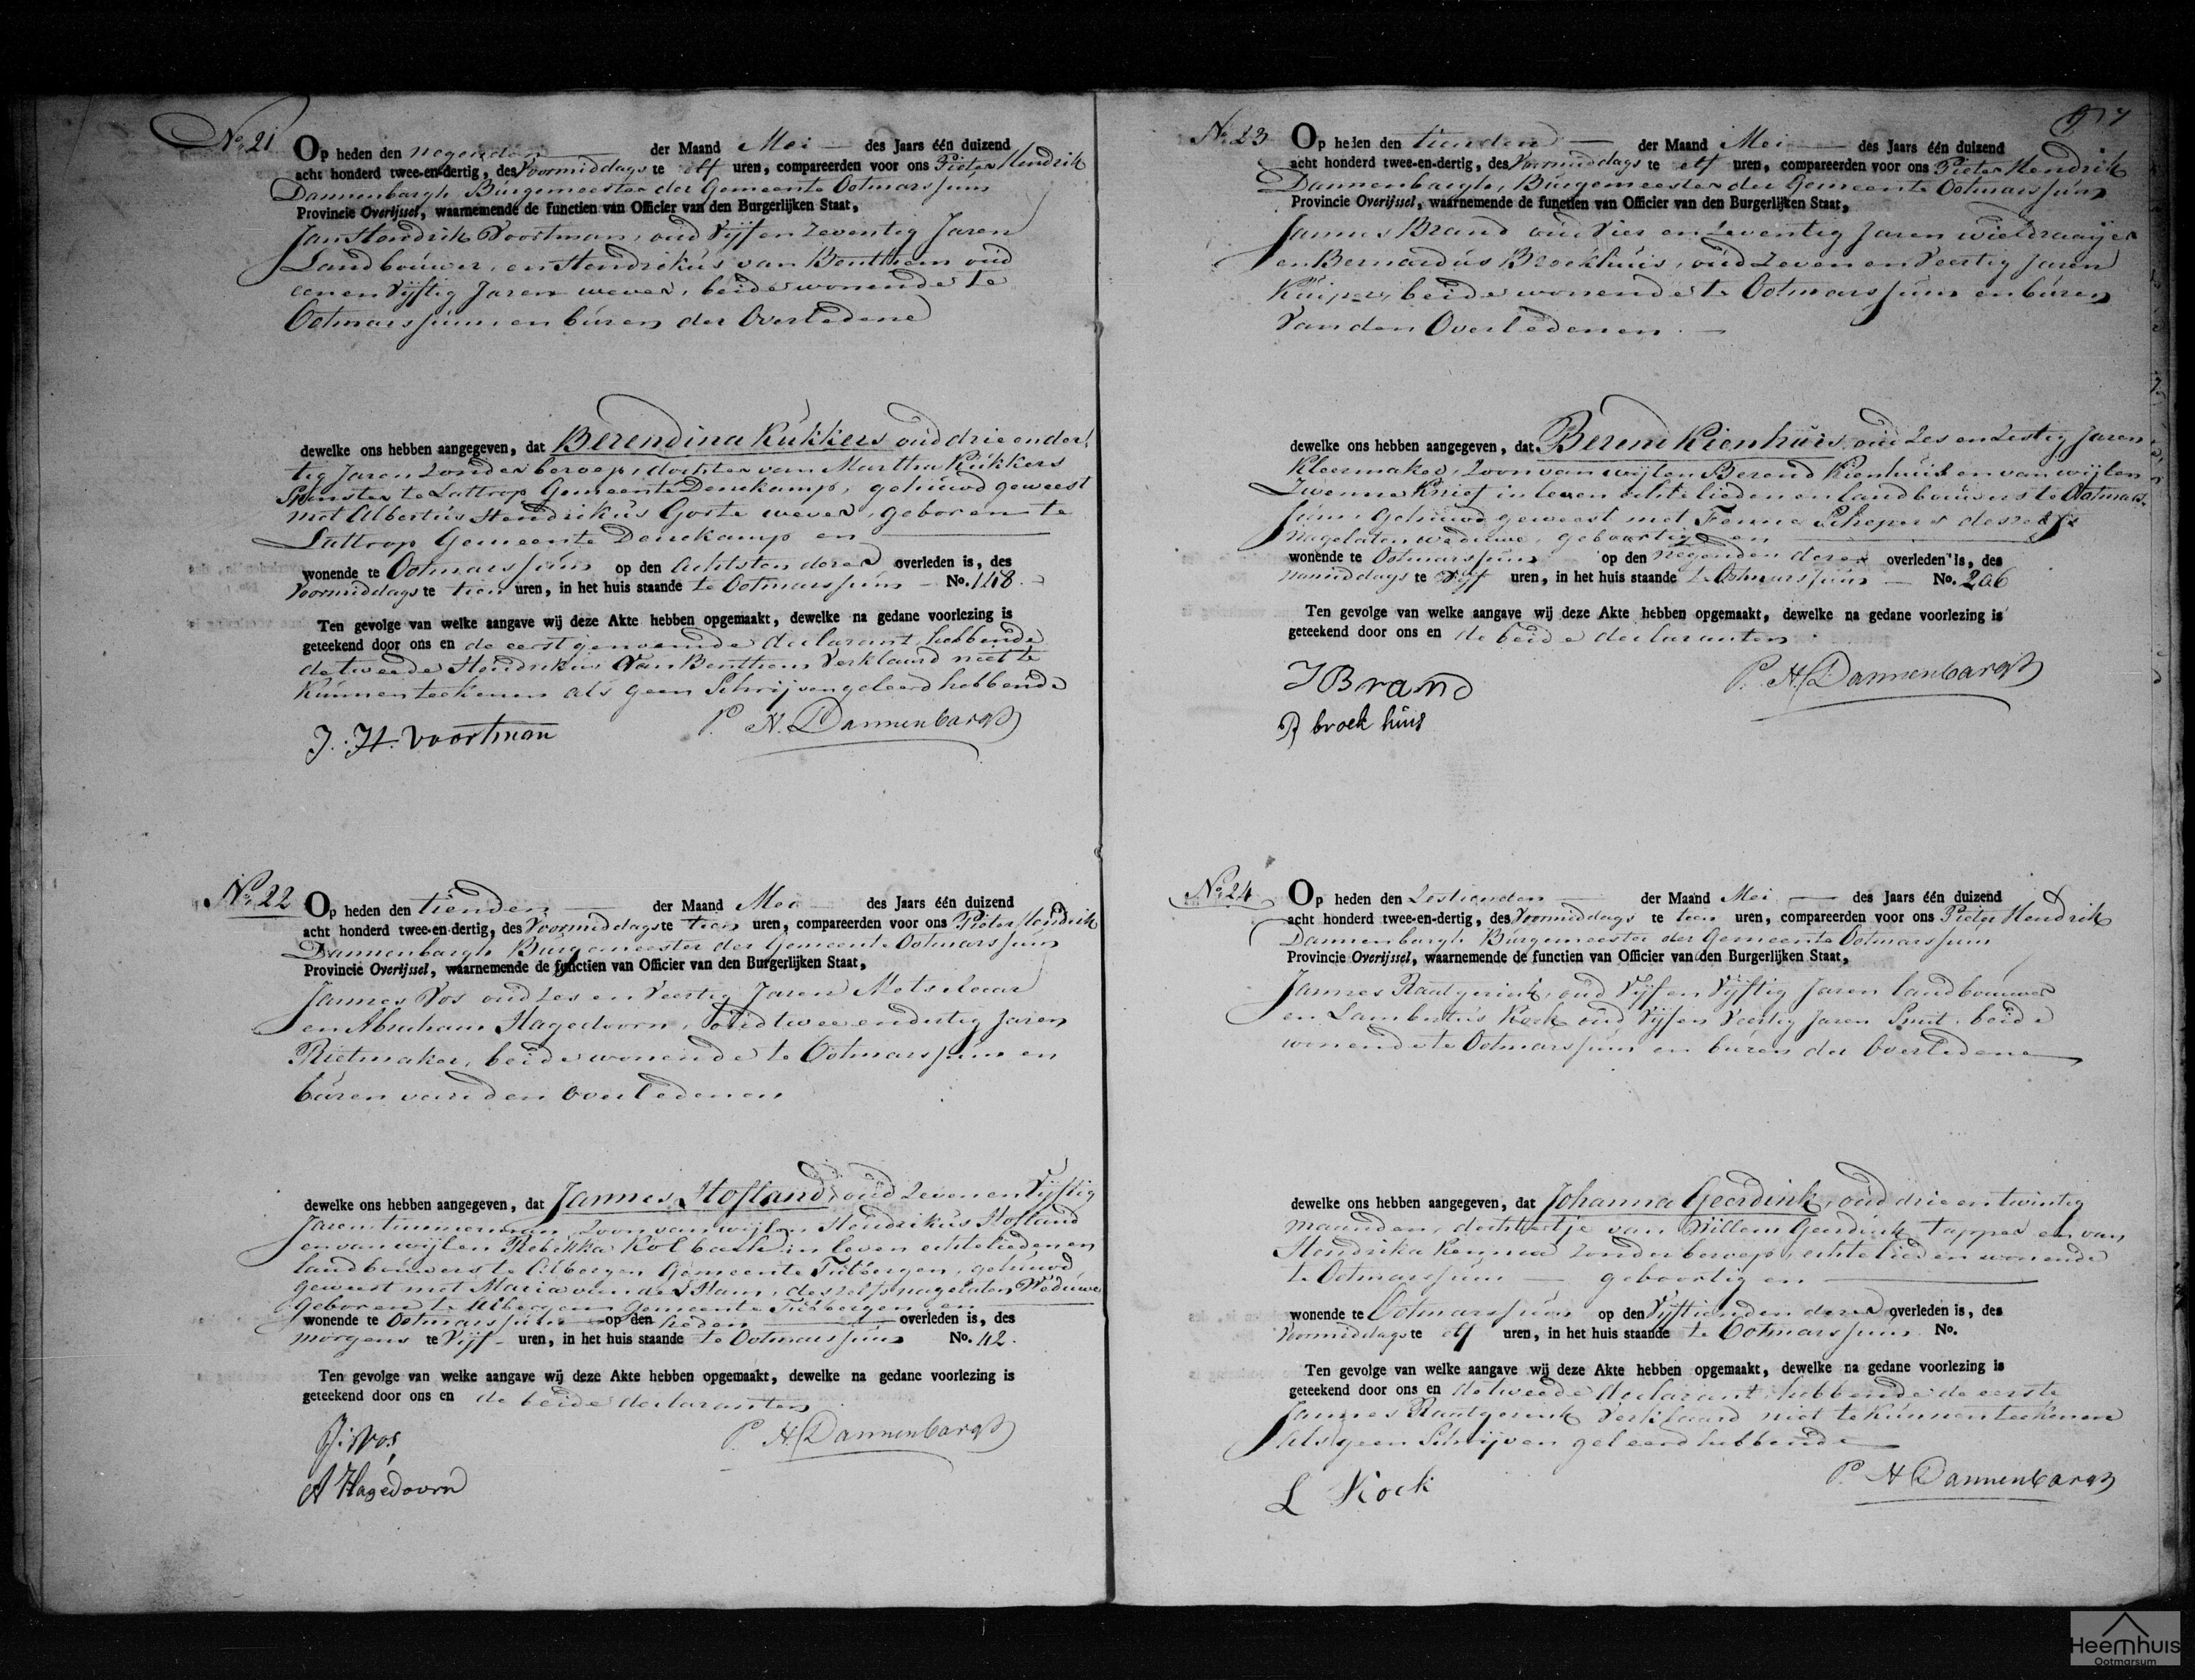 No 21
Op heden den negenden der Maand Mei des Jaars één duizend
acht honderd twee-en-dertig, des Voormiddags te elf uren, compareerden voor ons Pieter Hendrik
Dannenbargh Burgemeester der Gemeente Ootmarssum
Provincie Overijssel, waarnemende de functien van Officier van den Burgerlijken Staat,
Jan Hendrik Voortman, oud Vijf en Zeventig Jaren
Landbouwer, en Hendrikus van Benthem oud
een en Vijftig Jaren wever, beide wonende te
Ootmarssum, en buren der Overledene
dewelke ons hebben aangegeven, dat Berendina Kukkers oud drie en der-
tig Jaren Zonder beroep, dochter van Martha Kukkers
Spinster te Lattrop Gemeente Denekamp, gehuwd geweest
met Albertus Hendrikus Gorte wever, geboren te
Lattrop Gemeente Denekamp en
wonende te Ootmarssum op den Achtsten dezer overleden is, des
Voormiddags te tien uren, in het huis staande te Ootmarssum No. 148.
Ten gevolge van welke aangave wij deze Akte hebben opgemaakt, dewelke na gedane voorlezing is
geteekend door ons en de eerstgenoemde declarant, hebbende
de tweede Hendrikus Van Benthem Verklaard niet te
Kunnen teekenen als geen Schrijven geleerd hebbende
J. H. Voortman P. H. Dannenbargh
No 22
Op heden den tienden der Maand Mei des Jaars één duizend
acht honderd twee-en-dertig, des Voormiddags te tien uren, compareerden voor ons Pieter Hendrik
Dannenbargh Burgemeester der Gemeente Ootmarssum
Provincie Overijssel, waarnemende de functien van Officier van den Burgerlijken Staat,
Jannes Vos oud Zes en Veertig Jaren Metselaar
en Abraham Hagedoorn, oud twee en dertig Jaren
Rietmaker, beide wonende te Ootmarssum en
buren van den Overledenen
dewelke ons hebben aangegeven, dat Jannes Hofland, oud Zeven en Vijftig
Jaren timmerman, Zoon van wijlen Hendrikus Hofland
en van wijlen Rebekka Kolbach in leven echtelieden en
landbouwers te Albergen Gemeente Tubbergen, gehuwd
geweest met Maria van der Ham, deszelfs nagelaten Weduwe
geboren te Albergen Gemeente Tubbergen en
wonende te Ootmarssum op den heden overleden is, des
morgens te Vijf uren, in het huis staande te Ootmarssum No. 42.
Ten gevolge van welke aangave wij deze Akte hebben opgemaakt, dewelke na gedane voorlezing is
geteekend door ons en de beide declaranten
J: Vos P. H. Dannenbargh
A Hagedoorn
97
No 23
Op heden den tienden der Maand Mei des Jaars één duizend
acht honderd twee-en-dertig, des Voormiddags te elf uren, compareerden voor ons Pieter Hendrik
Dannenbargh, Burgemeester der Gemeente Ootmarssum
Provincie Overijssel, waarnemende de functien van Officier van den Burgerlijken Staat,
Jannes Brand oud Vier en Zeventig Jaren wieldraayer
en Bernardus Broekhuis, oud Zeven en Veertig Jaren
Kuiper, beide wonende te Ootmarssum en buren
Van den Overledenen.
dewelke ons hebben aangegeven, dat Berend Kienhuis, oud Zes en Zestig Jaren
Kleermaker, Zoon van wijlen Berend Kienhuis en van wijlen
Zwenne Knief in leven echtelieden en landbouwers te Ootmars-
sum, gehuwd geweest met Fenne Schepers deszelfs
nagelaten weduwe, geboortig en
wonende te Ootmarssum op den negenden dezer overleden is, des
namiddags te Vijf uren, in het huis staande te Ootmarssum No. 206
Ten gevolge van welke aangave wij deze Akte hebben opgemaakt, dewelke na gedane voorlezing is
geteekend door ons en de beide declaranten
J Brand P. H. Dannenbargh
B broek huis
No 24
Op heden den Zestienden der Maand Mei des Jaars één duizend
acht honderd twee-en-dertig, des Voormiddags te tien uren, compareerden voor ons Pieter Hendrik
Dannenbargh Burgemeester der Gemeente Ootmarssum
Provincie Overijssel, waarnemende de functien van Officier van den Burgerlijken Staat,
Jannes Raatgerink, oud Vijf en Vijftig Jaren landbouwer
en Lambertus Kock oud Vijf en Veertig Jaren Smit, beide
wonende te Ootmarssum en buren der Overledene
dewelke ons hebben aangegeven, dat Johanna Geerdink, oud drie en twintig
maanden, dochtertje van Willem Geerdink tapper en van
Hendrika Kenna Zonder beroep, echtelieden wonende
te Ootmarssum geboortig en
wonende te Ootmarssum op den Vijftienden dezer overleden is, des
Voormiddags te elf uren, in het huis staande te Ootmarssum No.
Ten gevolge van welke aangave wij deze Akte hebben opgemaakt, dewelke na gedane voorlezing is
geteekend door ons en de tweede declarant, hebbende de eerste
Jannes Raatgerink Verklaard niet te kunnen teekenen
als geen Schrijven geleerd hebbende
L Kock P. H Dannenbargh
Heemhuis
Ootmarsum